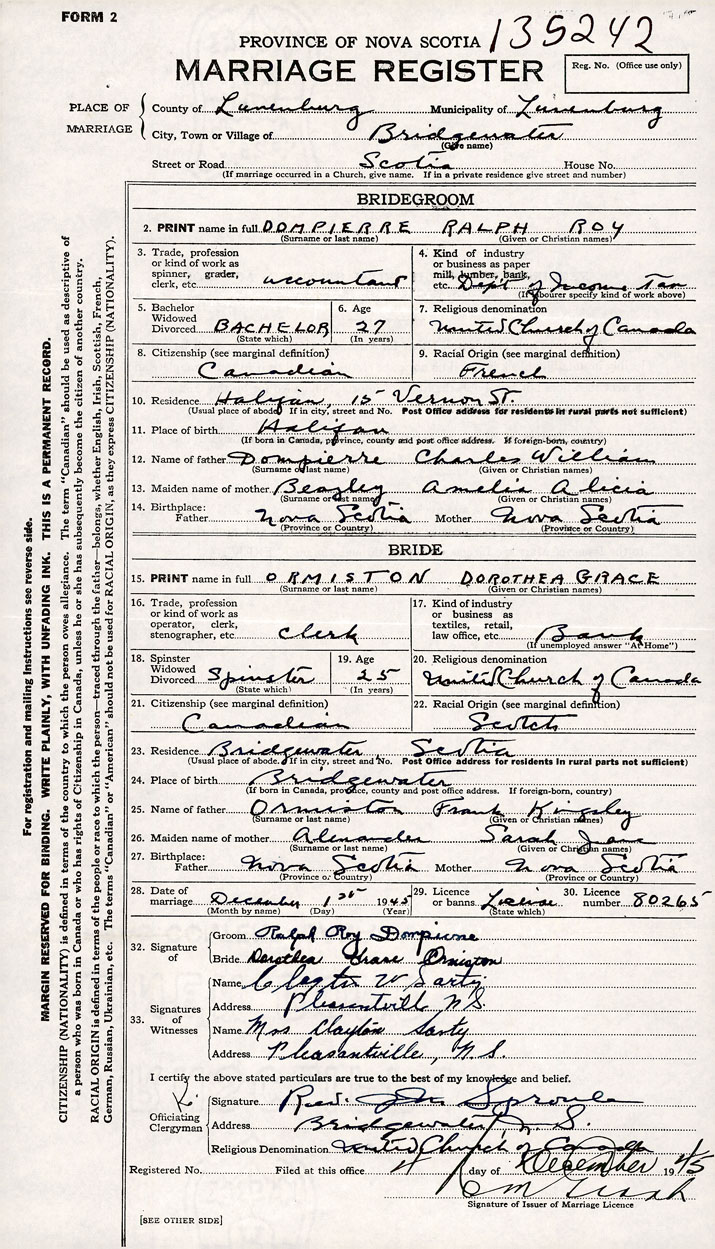 FORM 2
135242
PROVINCE OF NOVA SCOTIA
MARRIAGE REGISTER
Reg. No. (Office use only)
PLACE OF MARRIAGE
County of Lunenburg Municipality of Lunenburg
City, Town or Village of Bridgewater
(Give name)
Street or Road Scotia House No.
(If marriage occurred in a Church, give name. If in a private residence give street and number)
BRIDEGROOM
2. PRINT name in full DOMPIERRE RALPH ROY
(Surname or last name) (Given or Christian names)
3. Trade, profession or kind of work as spinner, grader, clerk, etc. accountant
4. Kind of industry or business as paper mill, lumber, bank, etc. Dep't of Income Tax
(If labourer specify kind of work above)
5. Bachelor Widowed Divorced BACHELOR
(State which)
6. Age 27
(In years)
7. Religious denomination
United Church of Canada
8. Citizenship (see marginal definition)
Canadian
9. Racial Origin (see marginal definition)
French
10. Residence Halifax, 15 Vernon St.
(Usual place of abode. If in city, street and No. Post Office address for residents in rural parts not sufficient)
11. Place of birth Halifax
(If born in Canada, province, county and post office address. If foreign-born, country)
12. Name of father Dompierre Charles William
(Surname or last name) (Given or Christian names)
13. Maiden name of mother Beazley Amelia Alicia
(Surname or last name) (Given or Christian names)
14. Birthplace: Father Nova Scotia Mother Nova Scotia
(Province or Country) (Province or Country)
BRIDE
15. PRINT name in full ORMISTON DOROTHEA GRACE
(Surname or last name) (Given or Christian names)
16. Trade, profession or kind of work as operator, clerk, stenographer, etc. Clerk
17. Kind of industry or business as textiles, retail, law office, etc. Bank
(If unemployed answer "At Home")
18. Spinster Widowed Divorced Spinster
(State which)
19. Age 25
(In years)
20. Religious denomination
United Church of Canada
21. Citizenship (see marginal definition)
Canadian
22. Racial Origin (see marginal definition)
Scotch
23. Residence Bridgewater Scotia
(Usual place of abode. If in city, street and No. Post Office address for residents in rural parts not sufficient)
24. Place of birth Bridgewater
(If born in Canada, province, county and post office address. If foreign-born, country)
25. Name of father Ormiston Frank Kingsley
(Surname or last name) (Given or Christian names)
26. Maiden name of mother Alexander Sarah Jane
(Surname or last name) (Given or Christian names)
27. Birthplace: Father Nova Scotia Mother Nova Scotia
(Province or Country) (Province or Country)
28. Date of marriage December 1st 1945
(Month by name) (Day) (Year)
29. Licence or banns License
(State which)
30. Licence number 80265
32. Signature of
Groom Ralph Roy Dompierre
Bride Dorothea Grace Ormiston
33. Signatures of Witnesses
Name Clayton W Sarty
Address Pleasantville N.S.
Name Mrs Clayton Sarty
Address Pleasantville, N.S.
I certify the above stated particulars are true to the best of my knowledge and belief.
Officiating Clergyman
Signature Rev. Sproule
Address Bridgewater N.S.
Religious Denomination United Church of Canada
Registered No. Filed at this office 4 day of December 1945
Signature of Issuer of Marriage Licence
[SEE OTHER SIDE]
For registration and mailing instructions see reverse side.
MARGIN RESERVED FOR BINDING. WRITE PLAINLY, WITH UNFADING INK. THIS IS A PERMANENT RECORD.
CITIZENSHIP (NATIONALITY) is defined in terms of the country to which the person owes allegiance. The term "Canadian" should be used as descriptive of
a person who was born in Canada or who has rights of Citizenship in Canada, unless he or she has subsequently become the citizen of another country.
RACIAL ORIGIN is defined in terms of the people or race to which the person—traced through the father—belongs, whether English, Irish, Scottish, French,
German, Russian, Ukrainian, etc. The terms "Canadian" or "American" should not be used for RACIAL ORIGIN, as they express CITIZENSHIP (NATIONALITY).